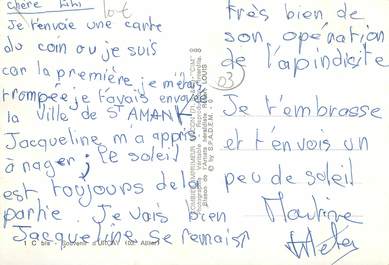 Chère Lili
Je t'envoie une carte
du coin ou je suis
car la première je m'étais
trompée je t'avais envoyé
la ville de St AMAN
Jacqueline m'a appris
à nager ; le soleil
est toujours de la
partie. Je vais bien
Jacqueline se remaist
très bien de
son opération
de l'apindisite
03
Je t'embrasse
et t'envois un
peu de soleil
Martine